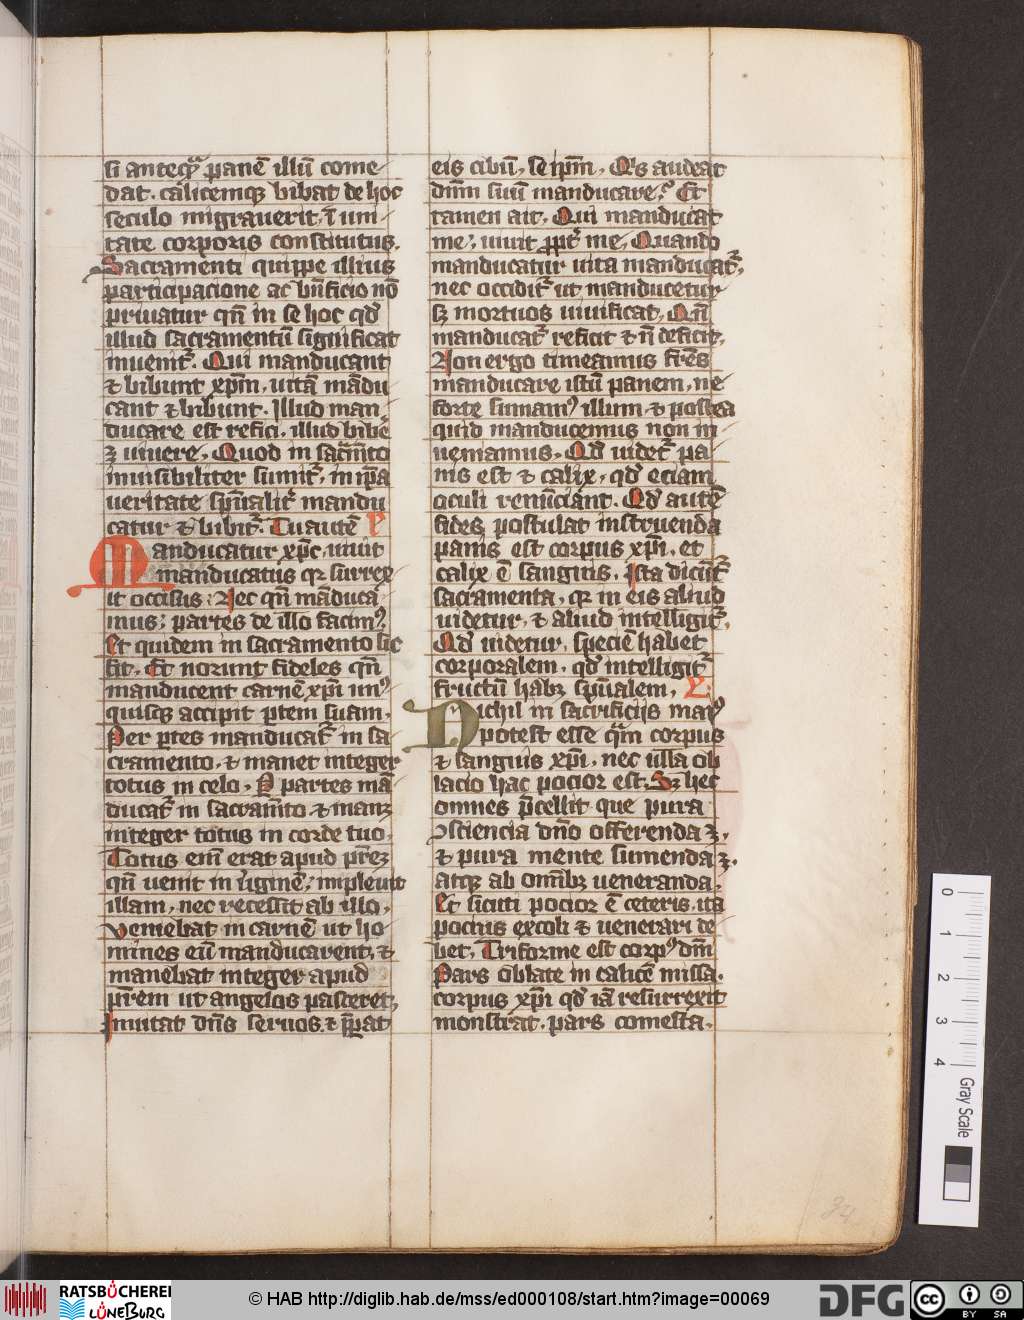 si anteq̄ panē illū come-
dat. calicemq; bibat de hoc
seculo migrauerit. ī uni-
tate corporis constitutus.
Sacramenti quippe illius
participacione ac bn̄ficio nō
priuatur qn̄ in se hoc qd̛
illud sacramentū significat
inuenit᷑. Qui manducant
⁊ bibunt xp̄m, uitā mādu
cant ⁊ bibunt. Illud man-
ducare est refici. illud bibē
ꝫ uiuere. Quod in sacr̄mto
inuisibiliter sumit᷑, in ip̄a
ueritate sp̄ualit᷑ mandu
catur ⁊ bibit᷑. Tu autē
Manducatur xp̄c, uiuit
manducatus qꝛ surrex
it occisus. Nec qn̄ māduca
mus; partes de illo facimꝰ.
Et quidem in sacramento sic
fit. Et norunt fideles qn̄
manducent carnē xp̄i unꝰ
quisq; accipit ꝑtem suam.
Per ꝑtes manducat᷑ in sa
cramento. ⁊ manet integer
totus in celo. P partes mā
ducat᷑ in sacram̄to ⁊ manꝫ
integer totus in corde tuo.
Totus em̄ erat apud pr̄eꝫ
qn̄ uenit in ưginē; impleuit
illam, nec recessit ab illo.
Veniebat in carnē ut ho-
mines eū manducarent, ⁊
manebat integer apud
pr̄em ut angelos pasceret,
Inuitat dn̄s seruos. ⁊ p̄pat
eis cibū, se ip̄m. Qis audeat
dn̄m suū manducare? Et
tamen ait. Qui manducat
me; uiuit ꝓpt᷑ me. Quando
manducatur uita manducat᷑,
nec occidit᷑ ut manducetur
sꝫ mortuos uiuificat. Qn̄
manducat᷑ reficit ⁊ n̄ deficit.
Non ergo timeamus fr̄es
manducare istū panem, ne
forte finiamꝰ illum. ⁊ postea
quid manducemus non in
ueniamus. Qd̛ uidet᷑ pa
nis est ⁊ calix, qd̛ eciam
oculi renūciant. Qd̛ autē
fides postulat instruenda
panis est corpus xp̄i. et
calix ē sanguis. Ista dicūt᷑
sacramenta, qꝛ in eis aliud
uidetur, ⁊ aliud intelligit᷑.
Qd̛ uidetur, speciē habet
corporalem, qd̛ intelligit᷑
fructū habꝫ sp̄ualem.
Nichil in sacrificiis maiꝰ
potest esse q̄m corpus
⁊ sanguis xp̄i, nec ulla ob
lacio hac pocior est. Sꝫ hec
omnes p̄cellit que pura
ꝯsciencia dn̄o offerenda ꝫ.
⁊ pura mente sumenda ꝫ.
atq; ab omībꝫ ueneranda.
Et sicuti pocior ē ceteris. ita
pocius excoli ⁊ uenerari de
bet. Triforme est corpꝰ dn̄i
Pars oblate in calicē missa.
corpus xp̄i qd̛ iā resurrexit
monstrat. pars comesta.
24
0
1
2
3
4
Gray Scale
RATSBÜCHEREI
LÜNEBURG
© HAB http://diglib.hab.de/mss/ed000108/start.htm?image=00069
DFG
cc
BY SA